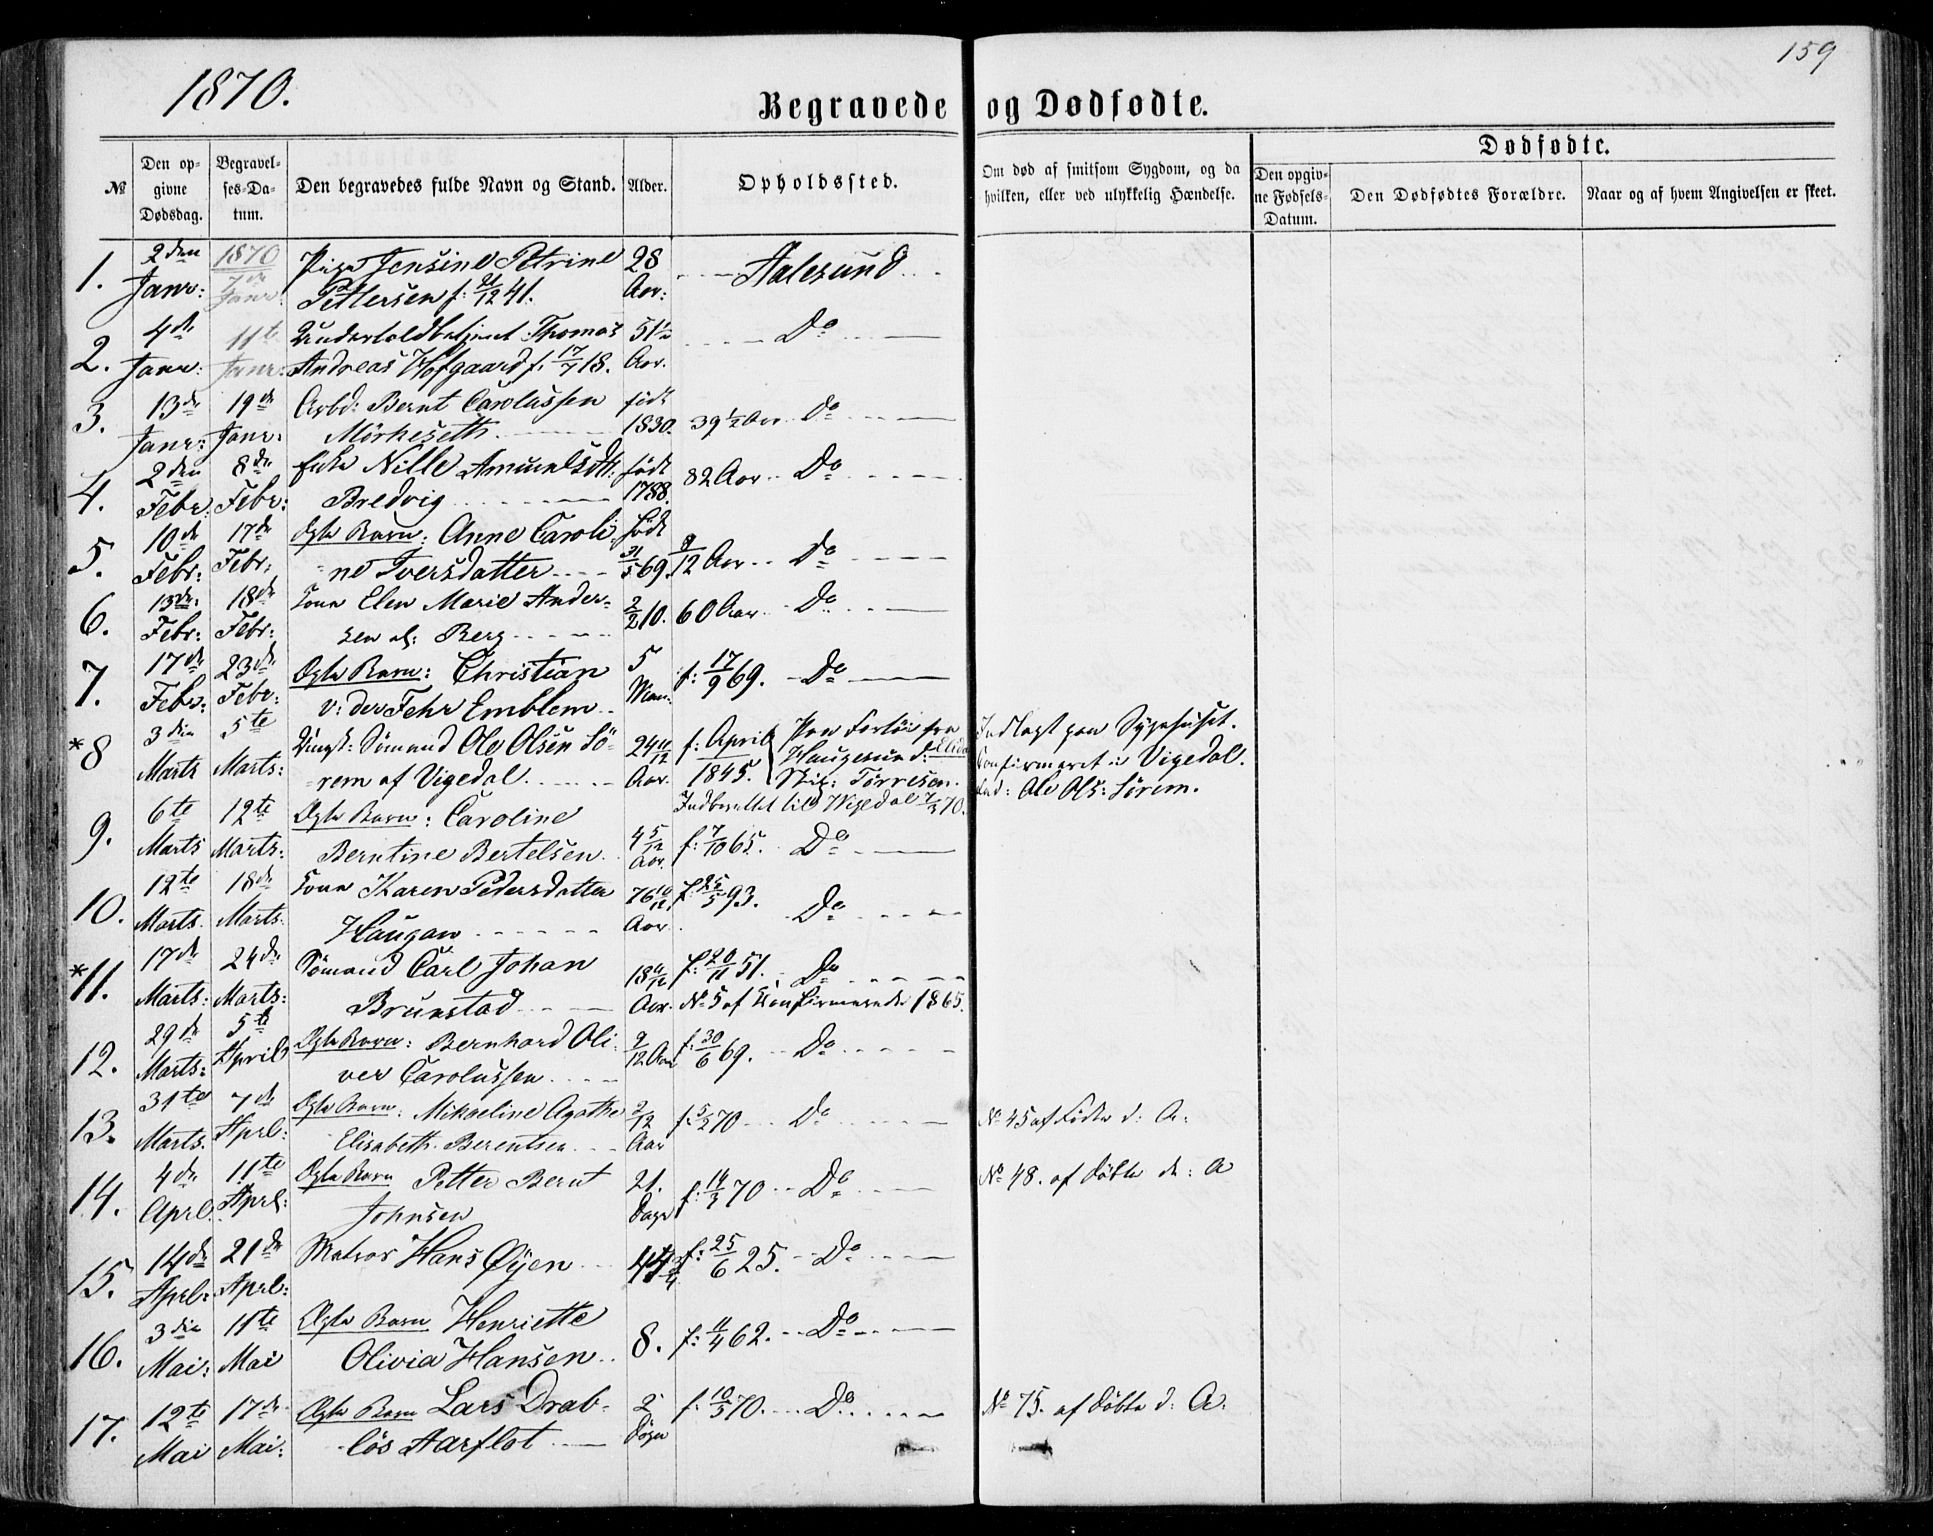 159
1870.
Begravede og Dødfødte.
№
Den opgivne Dødsdag.
Begravelses-Datum.
Den begravedes fulde Navn og Stand.
Alder.
Opholdssted.
Om død af smitsom Sygdom, og da hvilken, eller ved ulykkelig Hændelse.
Dødfødte.
Den opgivne Fødsels-Datum.
Den Dødfødtes Forældre.
Naar og af hvem Angivelsen er skeet.
1. 2den Janr: 1870 7de Janr: Pige Jensine Petrine 28 Aar: Aalesund
Pettersen f: 21/12 41.
2. 4de Janr: 11te Janr: Undertoldbetjent Thomas 51½ Aar. Do
Andreas Hofgaard f. 17/7 18.
3. 13de Janr: 19de Janr: Arbd: Bernt Carolussen født 1830. 39½ Aar Do
Mörkeseth
4. 2den Febr: 8de Febr: Enke Nille Amundsdtt: født 1788. 82 Aar Do
Bredvig
5. 10de Febr: 17de Febr: Ægte Barn: Anne Caroli- født 31/5 69. 8/12 Aar Do
ne Iversdatter
6. 13de Febr: 18de Febr: Kone Elen Marie Ander- 2/2 10. 60 Aar Do
sen al: Berg
7. 17de Febr: 23de Febr: Ægte Barn: Christian 5 Maan: f: 17/9 69. Do
v: der Fehr Emblem
*8 3die Marts 5te Marts: Ungk: Sømand Ole Olsen Sö- 24 11/12 Aar f: April 1845. Paa Fartöi fra Indlagt paa Sygehuset.
rem af Vigedal Haugesund: Elida Confirmeret i Vigedal.
Skip: Törresen. Ole Ols: Sörem.
Indberettet til Vigedal 7/3 70.
9. 6te Marts 12te Marts: Ægte Barn: Caroline 4 5/12 Aar f: 7/10 65. Do
Berntine Bertelsen
10. 12te Marts. 18de Marts. Kone Karen Pedersdatter 76 10/12 Aar f: 25/5 93. Do
Haugan
*11. 17de Marts: 24de Marts: Sömand Carl Johan 18 4/12 Aar. f: 20/11 51. Do
Brunstad № 5 af Konfirmerede 1865.
12. 29de Marts: 5te April Ægte Barn: Bernhard Oli- 9/12 Aar f: 30/6 69. Do
ver Carolussen
13. 31te Marts. 7de Aprl: Ægte Barn: Mikaeline Agathe 2/12 Aar f: 5/2 70 Do № 45 af Födte d: A:
Elisabeth Berentsen
14. 4de Aprl. 11te Aprl: Ægte Barn Petter Bernt 21. Dage f: 14/3 70 Do № 48. af Döbte d: A
Johnsen
15. 14de Aprl: 21de Aprl: Matros Hans Øyen 44 3/4 f: 25/6 25. Do
16. 3die Mai: 11te Mai Ægte Barn Henriette 8. f: 11/4 62. Do
Olivia Hansen
17. 12te Mai 17de Mai: Ægte Barn Lars Drab- 2 f: 10/5 70. Do № 75. af Döbte d: A:
lös Aarflot